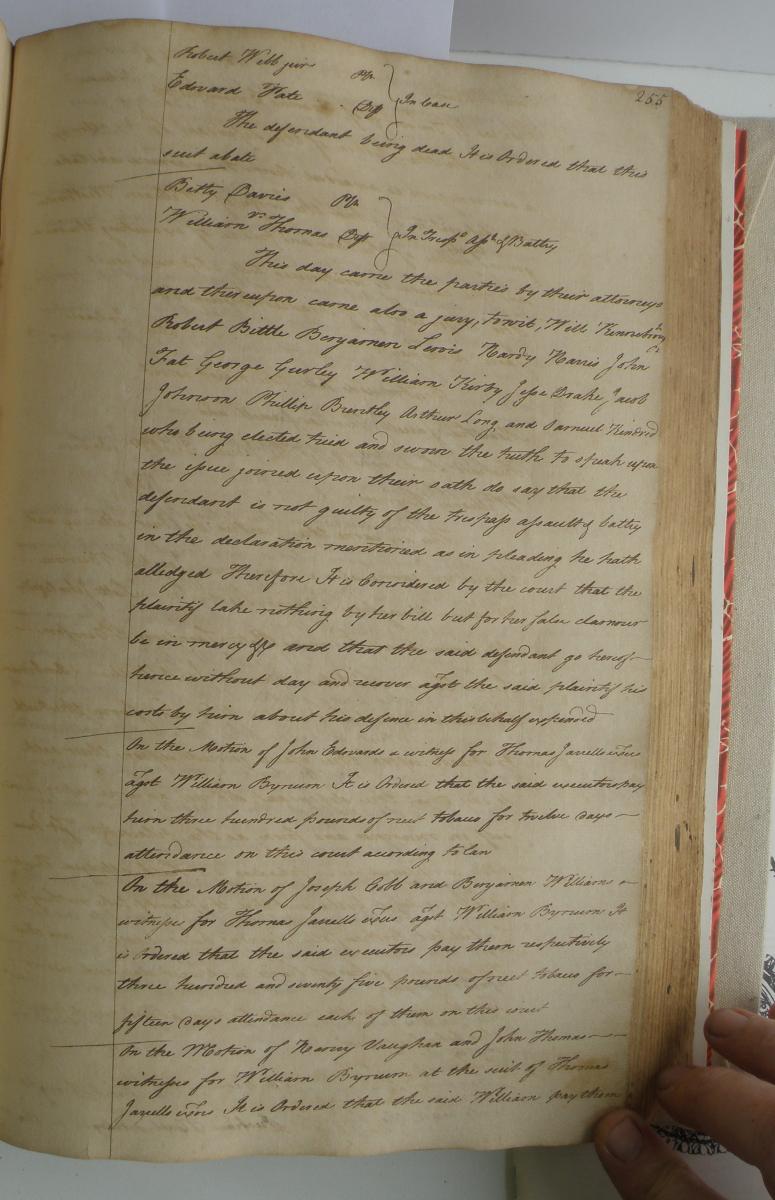 255
Robert Webb junr Plt
Edward Tate Deft In Case
The defendant being dead It is Ordered that this
suit abate
Betty Davies Plt
vs
William Thomas Deft In Tresps Asst & Battry
This day came the parties by their attorneys
and thereupon came also a jury, towit, Will
Robert Bittle Benjamen Lewis Hardy Harris John
Fat George Gurley William Kirby Jesse Drake Jacob
Johnson Phillip Brantley Arthur Long and Samuel Kindred
who being elected tried and sworn the truth to speak upon
the issue joined upon their oath do say that the
defendant is not guilty of the trespass assault & battry
in the declaration mentioned as in pleading he hath
alledged Therefore It is Considered by the court that the
plaintif take nothing by her bill but for her false clamour
be in mercy &c and that the said defendant go hereof
hence without day and recover agst the said plaintif his
costs by him about his defence in this behalf expended
On the Motion of John Edwards a witness for Thomas Jarrells exors
agst William Bynum It is Ordered that the said executors pay
him three hundred pounds of nett tobaco for twelve days
attendance on this court according to law
On the Motion of Joseph Cobb and Benjamen Williams
witnesses for Thomas Jarrells exors agst William Bynum It
is Ordered that the said executors pay them respectively
three hundred and seventy five pounds of nett tobaco for
fifteen days attendance each of them on this court
On the Motion of Henry Vaughan and John Thomas
witnesses for William Bynum at the suit of Thomas
Jarrells exors It is Ordered that the said William pay them